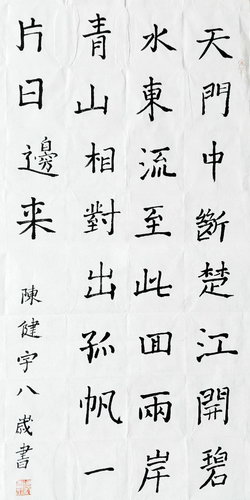 天門中斷楚江開碧
水東流至此回兩岸
青山相對出孤帆一
片日邊来
陳健宇八歲書